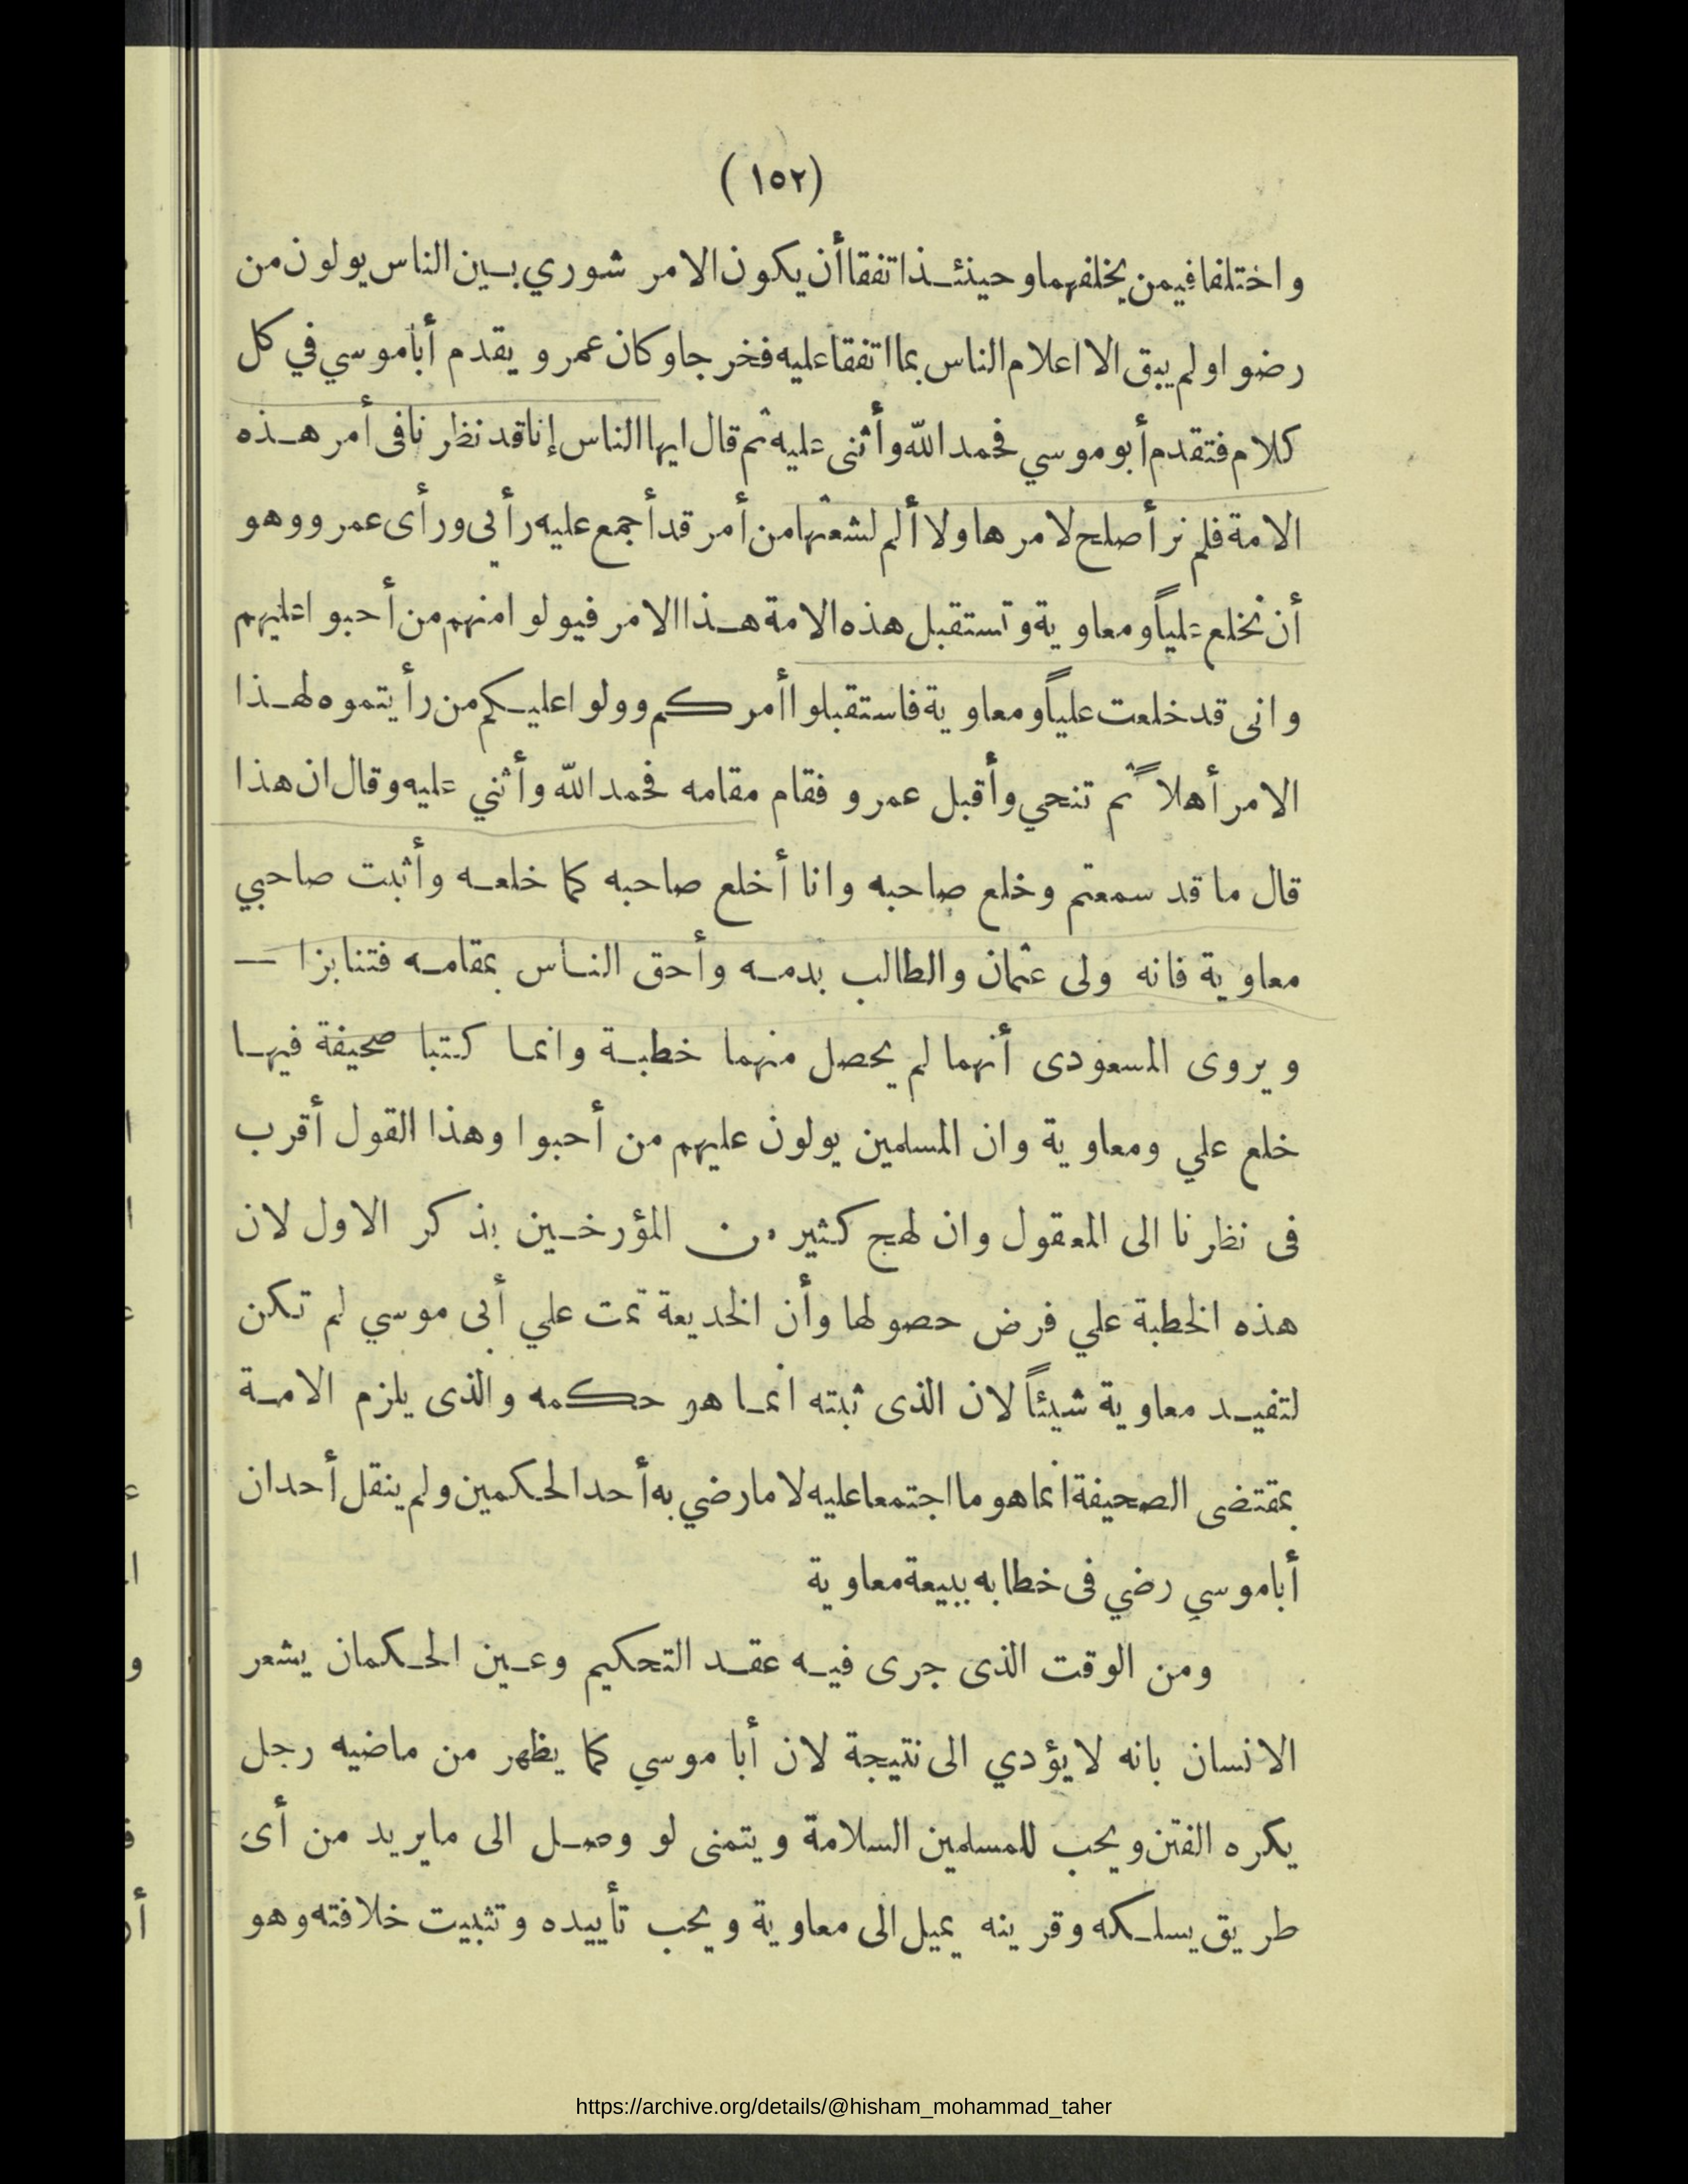 (١٥٢)
واختلفا فيمن يخلفهما وحينئذ اتفقا أن يكون الامر شوري بين الناس يولون من
رضوا ولم يبق الا اعلام الناس بما اتفقا عليه فخرجا وكان عمرو يقدم أبا موسي في كل
كلام فتقدم أبو موسي فحمد الله وأثنى عليه ثم قال ايها الناس إنا قد نظرنا فى أمر هذه
الامة فلم نر أصلح لامرها ولا ألم لشعثها من أمر قد أجمع عليه رأيي ورأى عمرو وهو
أن نخلع علياً ومعاوية وتستقبل هذه الامة هذا الامر فيولوا منهم من أحبوا عليهم
وانى قد خلعت علياً ومعاوية فاستقبلوا أمركم وولوا عليكم من رأيتموه لهذا
الامر أهلاً ثم تنحي وأقبل عمرو فقام مقامه فحمد الله وأثني عليه وقال ان هذا
قال ما قد سمعتم وخلع صاحبه وانا أخلع صاحبه كما خلعه وأثبت صاحبي
معاوية فانه ولى عثمان والطالب بدمه وأحق الناس بمقامه فتنابزا —
ويروى المسعودى أنهما لم يحصل منهما خطبة وانما كتبا صحيفة فيها
خلع علي ومعاوية وان المسلمين يولون عليهم من أحبوا وهذا القول أقرب
فى نظرنا الى المعقول وان لهج كثير من المؤرخين بذكر الاول لان
هذه الخطبة علي فرض حصولها وأن الخديعة تمت علي أبى موسي لم تكن
لتفيد معاوية شيئاً لان الذى ثبته انما هو حكمه والذى يلزم الامة
بمقتضى الصحيفة انما هو ما اجتمعا عليه لا ما رضي به أحد الحكمين ولم ينقل أحد ان
أبا موسي رضي فى خطابه ببيعة معاوية
ومن الوقت الذى جرى فيه عقد التحكيم وعين الحكمان يشعر
الانسان بانه لا يؤدي الى نتيجة لان أبا موسي كما يظهر من ماضيه رجل
يكره الفتن ويحب للمسلمين السلامة ويتمنى لو وصل الى ما يريد من أى
طريق يسلكه وقرينه يميل الى معاوية ويحب تأييده وتثبيت خلافته وهو
https://archive.org/details/@hisham_mohammad_taher